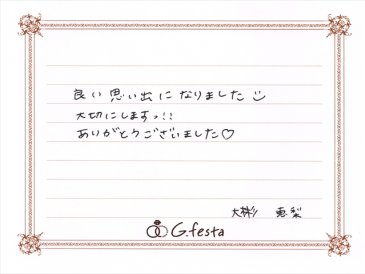 良い思い出になりました
大切にしますッ!!
ありがとうございました♡
大彬 恵梨
G.festa